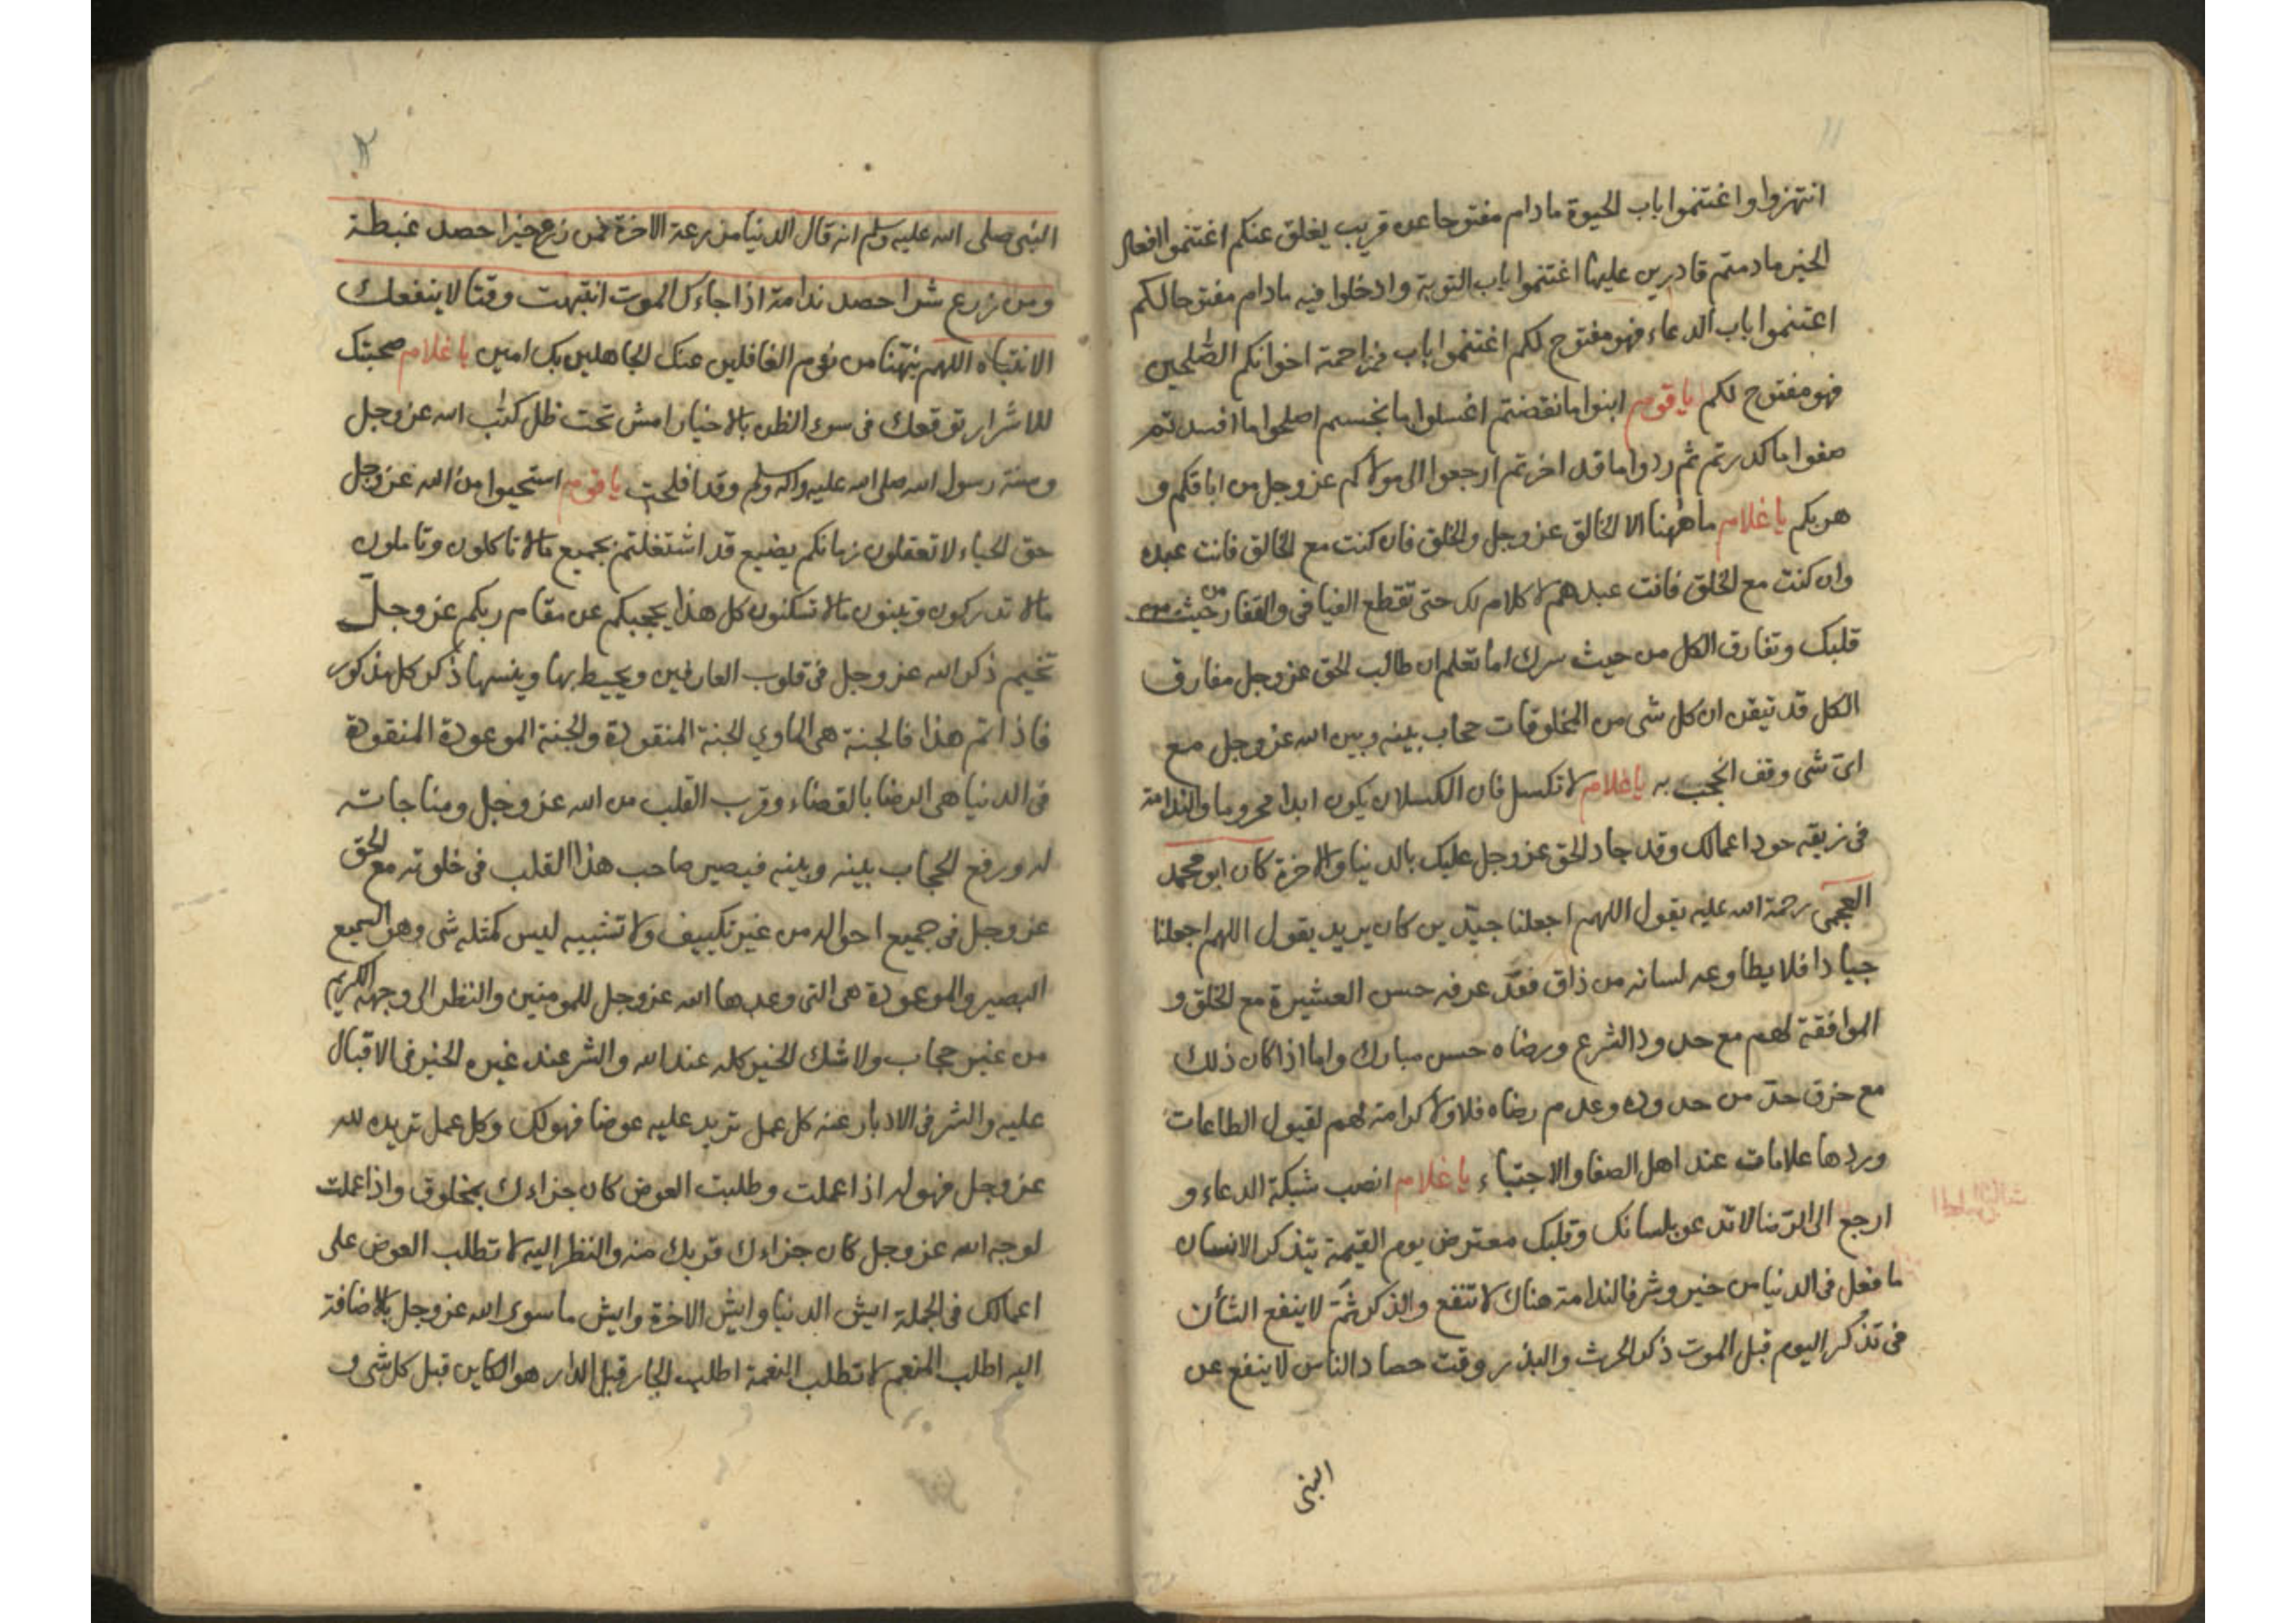 انتهزوا واغتنموا باب الحيوة مادام مفتوحا عن قريب يغلق عنكم اغتنموا افعال
الخير مادمتم قادرين عليها اغتنموا باب التوبة وادخلوا فيه مادام مفتوحا لكم
اغتنموا باب الدعاء فهو مفتوح لكم اغتنموا باب مزاحمة اخوانكم الصلحين
فهو مفتوح لكم يا قوم ابنوا ما نقضتم اغسلوا ما نجستم اصلحوا ما افسدتم
صفوا ما كدرتم ثم ردوا ما قد اخرتم ارجعوا الى مولاكم عز وجل من اباقكم و
هربكم يا غلام ما ههنا الا الخالق عز وجل والخلق فان كنت مع الخالق فانت عبده
وان كنت مع الخلق فانت عبدهم لا كلام لك حتى تقطع الفيافى والقفار من حيث
قلبك وتفارق الكل من حيث سرك اما تعلم ان طالب الحق عز وجل مفارق
الكل قد تيقن ان كل شى من المخلوقات حجاب بينه وبين الله عز وجل مع
اى شى وقف انحجب به يا غلام لا تكسل فان الكسلان يكون ابدا محروما والندامة
فى زيقه جود اعمالك وقد جاد الحق عز وجل عليك بالدنيا والاخرة كان ابو محمد
العجمى رحمة الله عليه يقول اللهم اجعلنا جيّدين كان يريد يقول اللهم اجعلنا
جيادا فلا يطاوعه لسانه من ذاق فقد عرف حسن العشيرة مع الخلق و
الموافقة لهم مع حدود الشرع ورضاه حسن مبارك واما اذا كان ذلك
مع خرق حدّ من حدوده وعدم رضاه فلا ولا كرامة لهم لقبول الطاعات
وردها علامات عند اهل الصفا والاجتباء يا غلام انصب شبكة الدعاء و
ارجع الى الرّضا لا تدعو بلسانك وقلبك معترض يوم القيمة يتذكر الانسان
ما فعل فى الدنيا من خير وشر فالندامة هناك لا تنفع والذكر ثَمَّ لا ينفع الشأن
فى تذكر اليوم قبل الموت ذكر الحرث والبذر وقت حصاد الناس لا ينفع عن
النبى
النبى صلى الله عليه وسلم انه قال الدنيا مزرعة الاخرة فمن زرع خيرا حصد غبطة
ومن زرع شرا حصد ندامة اذا جاءك الموت انتبهت وقتا لا ينفعك
الانتباه اللهم نبّهنا من نوم الغافلين عنك الجاهلين بك امين يا غلام صحبتك
للاشرار توقعك فى سوء الظن بالاخيار امش تحت ظل كتب الله عز وجل
وسنة رسول الله صلى الله عليه واله وسلم وقد افلحت يا قوم استحيوا من الله عز وجل
حق الحياء لا تعقلون زمانكم يضيع قد اشتغلتم بجميع مالا تاكلون وتاملون
مالا تدركون وتبنون مالا تسكنون كل هذا يحجبكم عن مقام ربكم عز وجل
تخيم ذكر الله عز وجل فى قلوب العارفين ويحيط بها وينسها ذكر كل مذكور
فاذا تم هذا فالجنة هى الماوي الجنة المنقودة والجنة الموعودة المنقودة
فى الدنيا هى الرضا بالقضاء وقرب القلب من الله عز وجل ومناجاته
له ورفع الحجاب بينه وبينه فيصير صاحب هذا القلب فى خلوته مع الحق
عز وجل فى جميع احواله من غير تكييف ولا تشبيه ليس كمثله شى وهو السميع
البصير والموعودة هى التى وعدها الله عز وجل للمومنين والنظر الى وجهه الكريم
من غير حجاب ولا شك الخير كله عند الله والشر عند غيره الخير فى الاقبال
عليه والشر فى الادبار عنه كل عمل تريد عليه عوضا فهو لك وكل عمل تريده لله
عز وجل فهو له اذا عملت وطلبت العوض كان جزاءك بمخلوق واذا عملت
لوجه الله عز وجل كان جزاءك قربك منه والنظر اليه لا تطلب العوض على
اعمالك فى الجملة ايش الدنيا وايش الاخرة وايش ما سوى الله عز وجل بالاضافة
اليه اطلب المنعم لا تطلب النعمة اطلب الجار قبل الدار هو الكاين قبل كل شى و